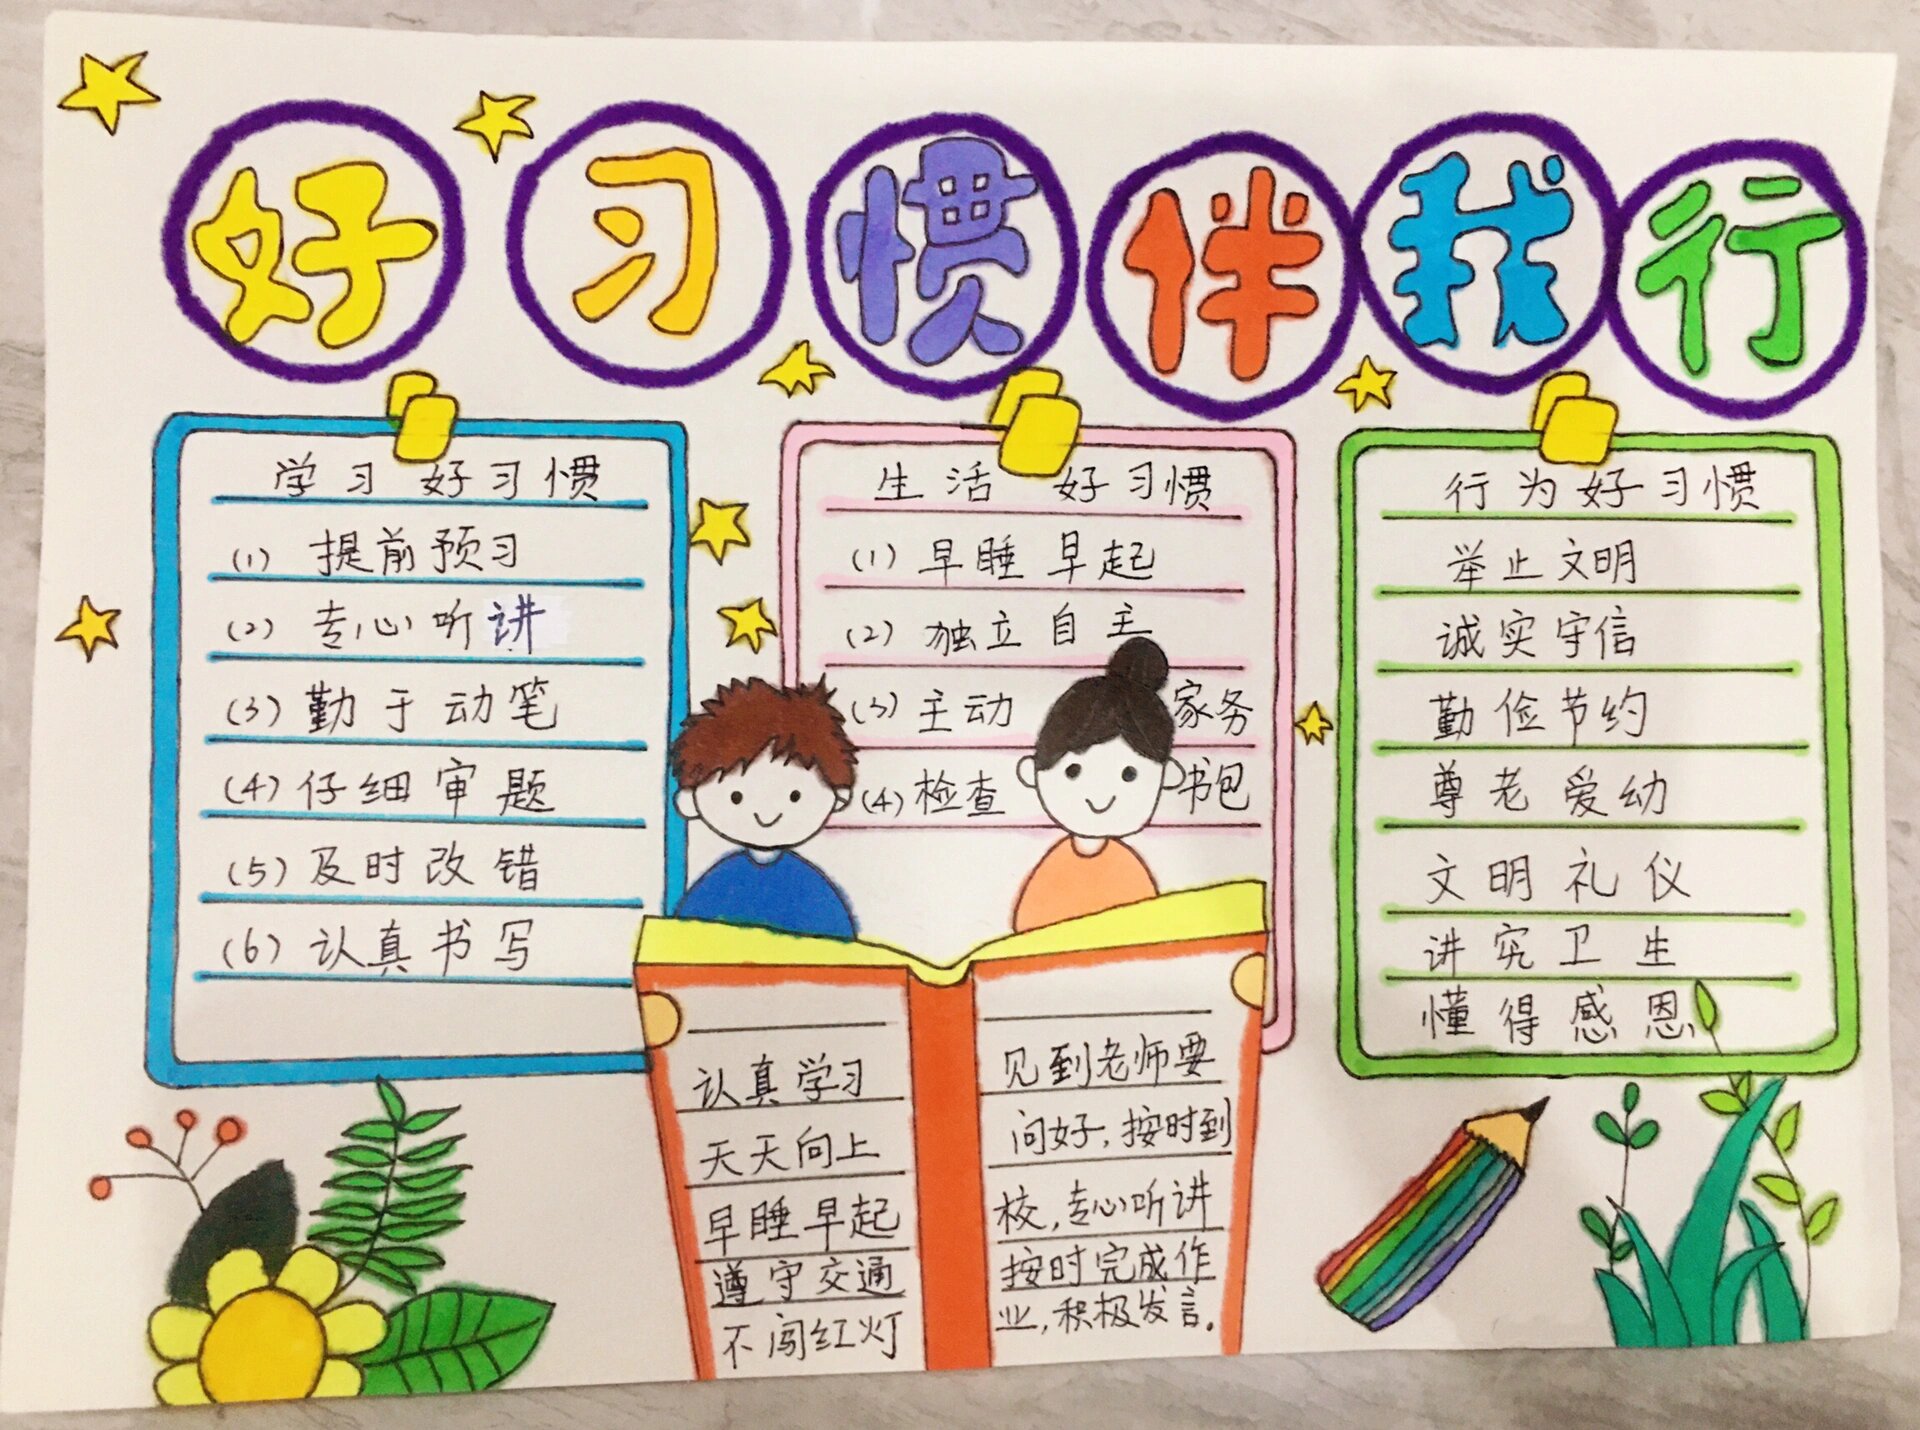 好习惯伴我行
学习好习惯
(1) 提前预习
(2) 专心听讲
(3) 勤于动笔
(4) 仔细审题
(5) 及时改错
(6) 认真书写
生活好习惯
(1) 早睡早起
(2) 独立自主
(3) 主动 家务
(4) 检查 书包
行为好习惯
举止文明
诚实守信
勤俭节约
尊老爱幼
文明礼仪
讲究卫生
懂得感恩
认真学习
天天向上
早睡早起
遵守交通
不闯红灯
见到老师要
问好,按时到
校,专心听讲
按时完成作
业,积极发言.